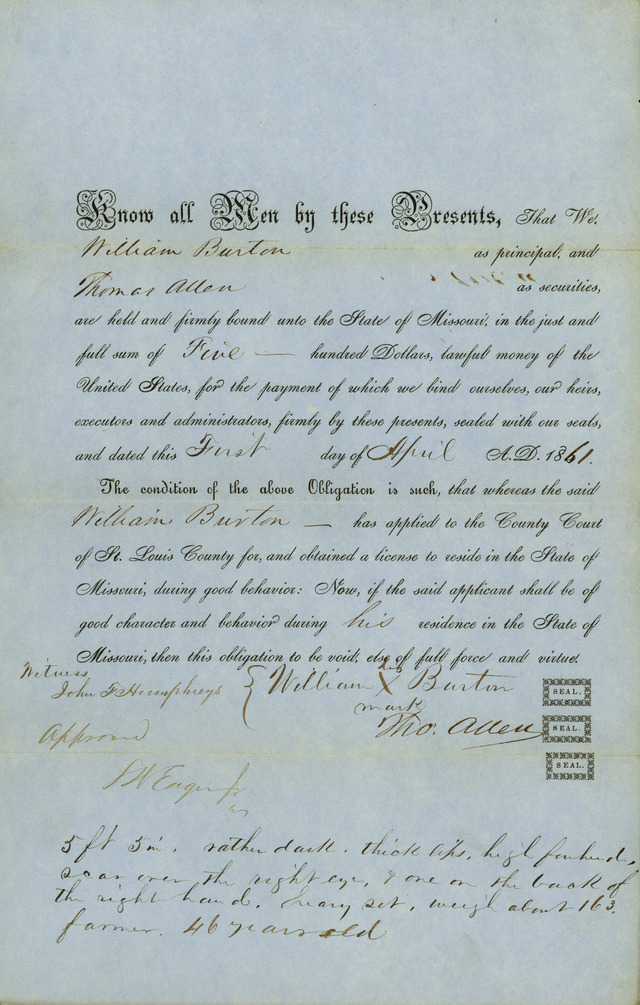 Know all Men by these Presents, That We,
William Burton as principal, and
Thomas Allen as securities,
are held and firmly bound unto the State of Missouri, in the just and
full sum of Five — hundred Dollars, lawful money of the
United States, for the payment of which we bind ourselves, our heirs,
executors and administrators, firmly by these presents, sealed with our seals,
and dated this First day of April A.D. 1861.
The condition of the above Obligation is such, that whereas the said
William Burton — has applied to the County Court
of St. Louis County for, and obtained a license to reside in the State of
Missouri, during good behavior: Now, if the said applicant shall be of
good character and behavior during his residence in the State of
Missouri, then this obligation to be void, else of full force and virtue.
Witness
John F Humphreys
William his X mark Burton SEAL.
Tho. Allen SEAL.
SEAL.
Approved
5 ft 5 in. rather dark. thick lips, high forehead,
scar over the right eye, & one on the back of
the right hand. heavy set, weigh about 163
farmer. 46 years old